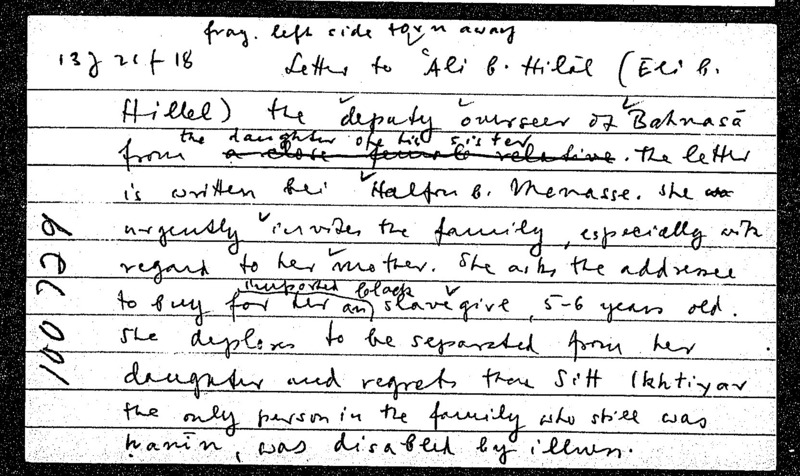 frag. left side torn away
13 J 21 f 18 Letter to ʿAlī b. Hilāl (Eli b.
Hillel) the deputy overseer of Bahnasā
the daughter of his sister
from a close female relative. The letter
is written bei Halfon b. Menasse. She
urgently invites the family, especially with
regard to her mother. She asks the addressee
imported black
to buy for her an slave girl, 5-6 years old.
She deplores to be separated from her
daughter and regrets that Sitt Ikhtiyar
the only person in the family who still was
ḥanīn, was disabled by illness.